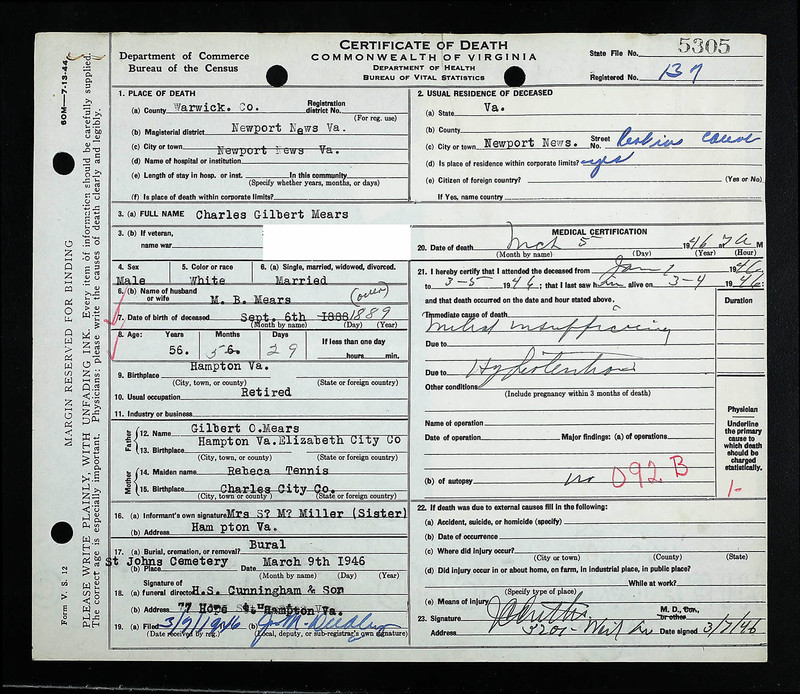 CERTIFICATE OF DEATH
COMMONWEALTH OF VIRGINIA
DEPARTMENT OF HEALTH
BUREAU OF VITAL STATISTICS
Department of Commerce
Bureau of the Census
State File No. 5305
Registered No. 137
60M—7-13-44
MARGIN RESERVED FOR BINDING
PLEASE WRITE PLAINLY, WITH UNFADING INK. Every item of information should be carefully supplied.
The correct age is especially important. Physicians: please write the causes of death clearly and legibly.
Form V. S. 12
1. PLACE OF DEATH
(a) County Warwick. Co. Registration district No.
(For reg. use)
(b) Magisterial district Newport News Va.
(c) City or town Newport News Va.
(d) Name of hospital or institution
(e) Length of stay in hosp. or inst. In this community
(Specify whether years, months, or days)
(f) Is place of death within corporate limits?
2. USUAL RESIDENCE OF DECEASED
(a) State Va.
(b) County
(c) City or town Newport News. Street No.
(d) Is place of residence within corporate limits? yes
(e) Citizen of foreign country? (Yes or No)
If Yes, name country
3. (a) FULL NAME Charles Gilbert Mears
3. (b) If veteran, name war
4. Sex Male
5. Color or race White
6. (a) Single, married, widowed, divorced. Married
6. (b) Name of husband or wife M. B. Mears (over)
7. Date of birth of deceased Sept. 6th 1888 1889
(Month by name) (Day) (Year)
8. Age: Years Months Days If less than one day
56. 5 6. 29 hours min.
9. Birthplace Hampton Va.
(City, town, or county) (State or foreign country)
10. Usual occupation Retired
11. Industry or business
Father
12. Name Gilbert O.Mears
13. Birthplace Hampton Va.Elizabeth City Co
(City, town, or county) (State or foreign country)
Mother
14. Maiden name Rebeca Tennis
15. Birthplace Charles City Co.
(City, town or county) (State or foreign country)
16. (a) Informant's own signature Mrs S? M? Miller (Sister)
(b) Address Ham pton Va.
17. (a) Burial, cremation, or removal? Bural
(b) Place St Johns Cemetery Date March 9th 1946
(Month by name) (Day) (Year)
18. (a) Signature of funeral director H.S. Cunningham & Son
(b) Address 77 Hope St Hampton Va.
19. (a) Filed 3/9/1946 (b)
(Date received by reg.) (Local, deputy, or sub-registrar's own signature)
MEDICAL CERTIFICATION
20. Date of death Mch 5 1946 7 A M
(Month by name) (Day) (Year) (Hour)
21. I hereby certify that I attended the deceased from Jan 1 1946
to 3-5 1946; that I last saw him alive on 3-4 1946;
and that death occurred on the date and hour stated above.
Duration
Immediate cause of death
Mitral insufficiency
Due to
Due to Hypertension
Other conditions
(Include pregnancy within 3 months of death)
Name of operation
Date of operation Major findings: (a) of operations
(b) of autopsy no 092 B
Physician
Underline the primary cause to which death should be charged statistically.
1-
22. If death was due to external causes fill in the following:
(a) Accident, suicide, or homicide (specify)
(b) Date of occurrence
(c) Where did injury occur?
(City or town) (County) (State)
(d) Did injury occur in or about home, on farm, in industrial place, in public place?
While at work?
(Specify type of place)
(e) Means of injury
23. Signature M. D., Cor. or other
Address 3201 - West Av Date signed 3/7/46